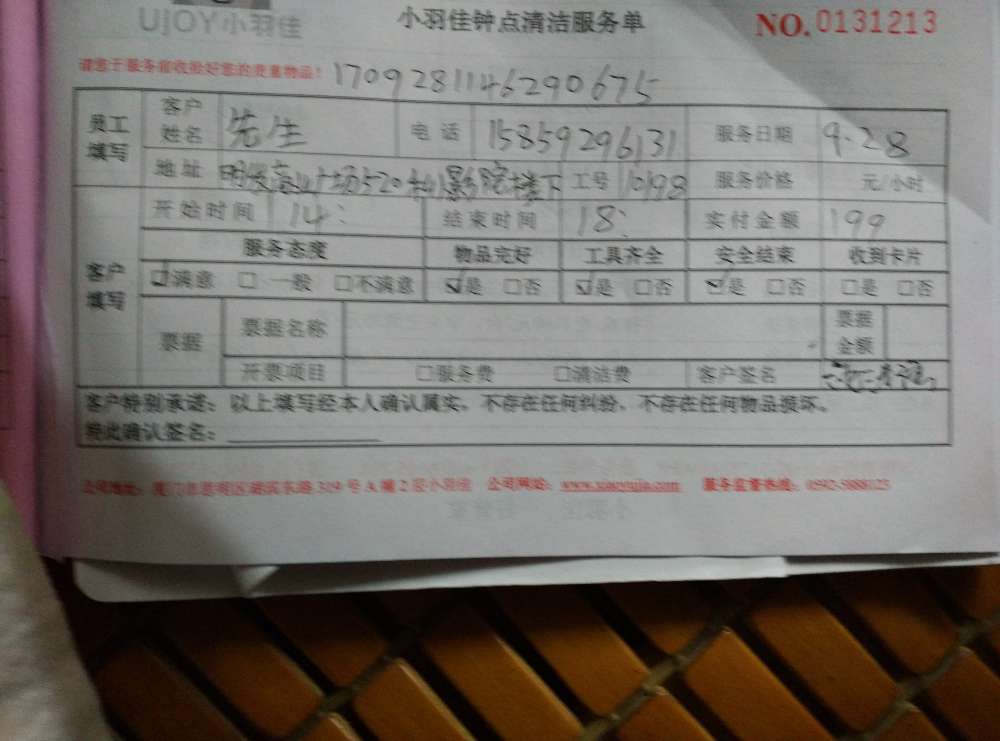 UJOY小羽佳 小羽佳钟点清洁服务单 NO.0131213
请您于服务前收拾好您的贵重物品! 1709281146290675
员工填写 客户姓名 先生 电话 15859296131 服务日期 9.28
地址 明发商业广场520 影院楼下 工号 10198 服务价格 元/小时
客户填写 开始时间 14: 结束时间 18: 实付金额 199
服务态度 物品完好 工具齐全 安全结束 收到卡片
☑满意 □一般 □不满意 ☑是 □否 ☑是 □否 ☑是 □否 □是 □否
票据 票据名称 票据金额
开票项目 □服务费 □清洁费 客户签名
客户特别承诺:以上填写经本人确认属实,不存在任何纠纷,不存在任何物品损坏。
特此确认签名:
公司地址:厦门市思明区湖滨东路319号A幢2层小羽佳 公司网站:www.xiaoyujia.com 服务监督热线:0592-5888123